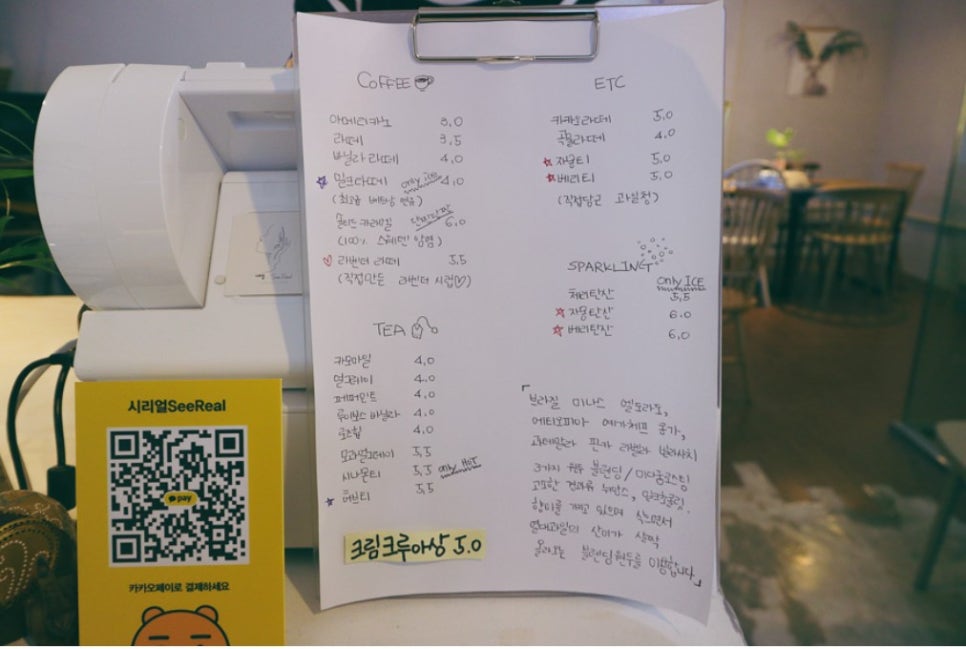 COFFEE
아메리카노 3.0
라떼 3.5
바닐라 라떼 4.0
밀크라떼 only ICE 4.0
(최고급 베트남 연유)
솔티드 카라멜 단짠단짠 6.0
(100% 스페인 암염)
라벤더 라떼 5.5
(직접만든 라벤더 시럽♡)
TEA
카모마일 4.0
얼그레이 4.0
페퍼민트 4.0
루이보스 바닐라 4.0
로즈힙 4.0
모과얼그레이 5.5
시나몬티 5.5 only HOT
티 5.5
크림크루아상 5.0
ETC
카카오라떼 5.0
곡물라떼 4.0
자몽티 5.0
베리티 5.0
(직접담근 과일청)
SPARKLING
only ICE
체리탄산 5.5
자몽탄산 6.0
베리탄산 6.0
「브라질 미나스 엘도라도,
에티오피아 예가체프 웅가,
과테말라
3가지 원두 블렌딩/미디움로스팅
고소한 견과류 뉘앙스, 밀크초콜릿,
향미를 갖고 있으며 식으면서
열대과일의 산미가 살짝
올라오는 블렌딩원두를 이용합니다.」
시리얼SeeReal
pay
카카오페이로 결제하세요
SeeReal